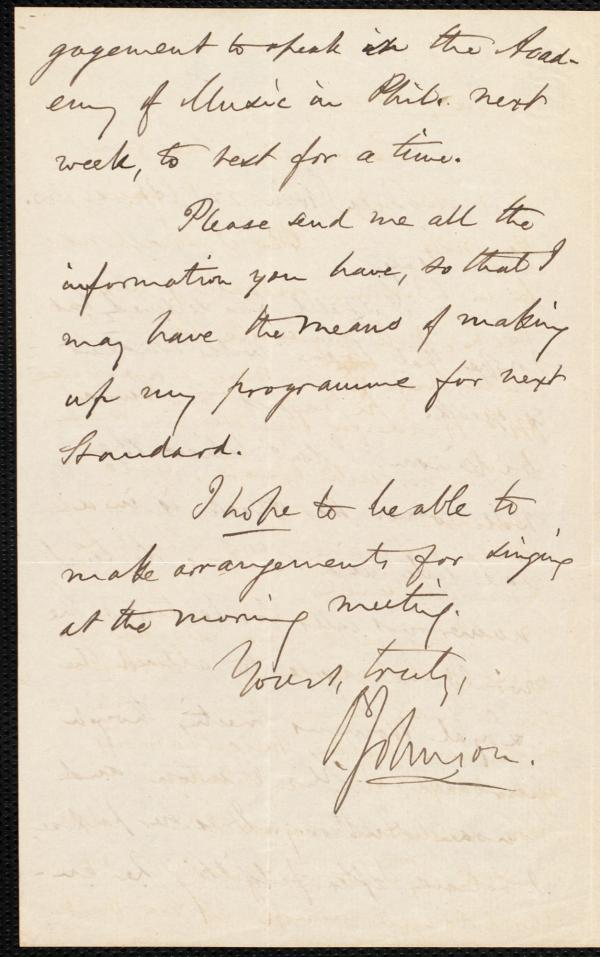 gagement to speak in the Acad-
emy of Music in Phil. next
week, to rest for a time.
Please send me all the
information you have, so that I
may have the means of making
up my programme for next
Standard.
I hope to be able to
make arrangements for singing
at the morning meeting.
Yours, truly,
Johnson.